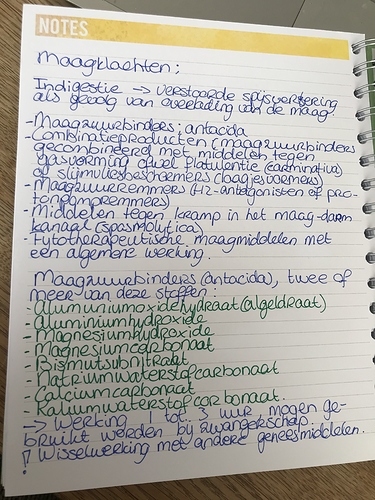 NOTES
Maagklachten;
Indigestie → verstoorde spijsvertering
als gevolg van overlading van de maag.
- Maagzuurbinders; antacida
- Combinatieproducten (maagzuurbinders
gecombineerd met middelen tegen
gasvorming ofwel flatulentie (carminativa)
of slijmvliesbeschermers (laagjesvormers)
- Maagzuurremmers (H2-antagonisten of pro-
tonpompremmers)
- Middelen tegen kramp in het maag-darm
kanaal (spasmolytica)
- Fytotherapeutische maagmiddelen met
een algemene werking.
Maagzuurbinders (antacida), twee of
meer van deze stoffen:
- Aluminiumoxidehydraat (algeldraat)
- Aluminiumhydroxide
- Magnesiumhydroxide
- Magnesiumcarbonaat
- Bismutsubnitraat
- Natriumwaterstofcarbonaat
- Calciumcarbonaat
- Kaliumwaterstofcarbonaat.
→ Werking 1 tot 3 uur mogen ge-
bruikt worden bij zwangerschap.
! Wisselwerking met andere geneesmiddelen.